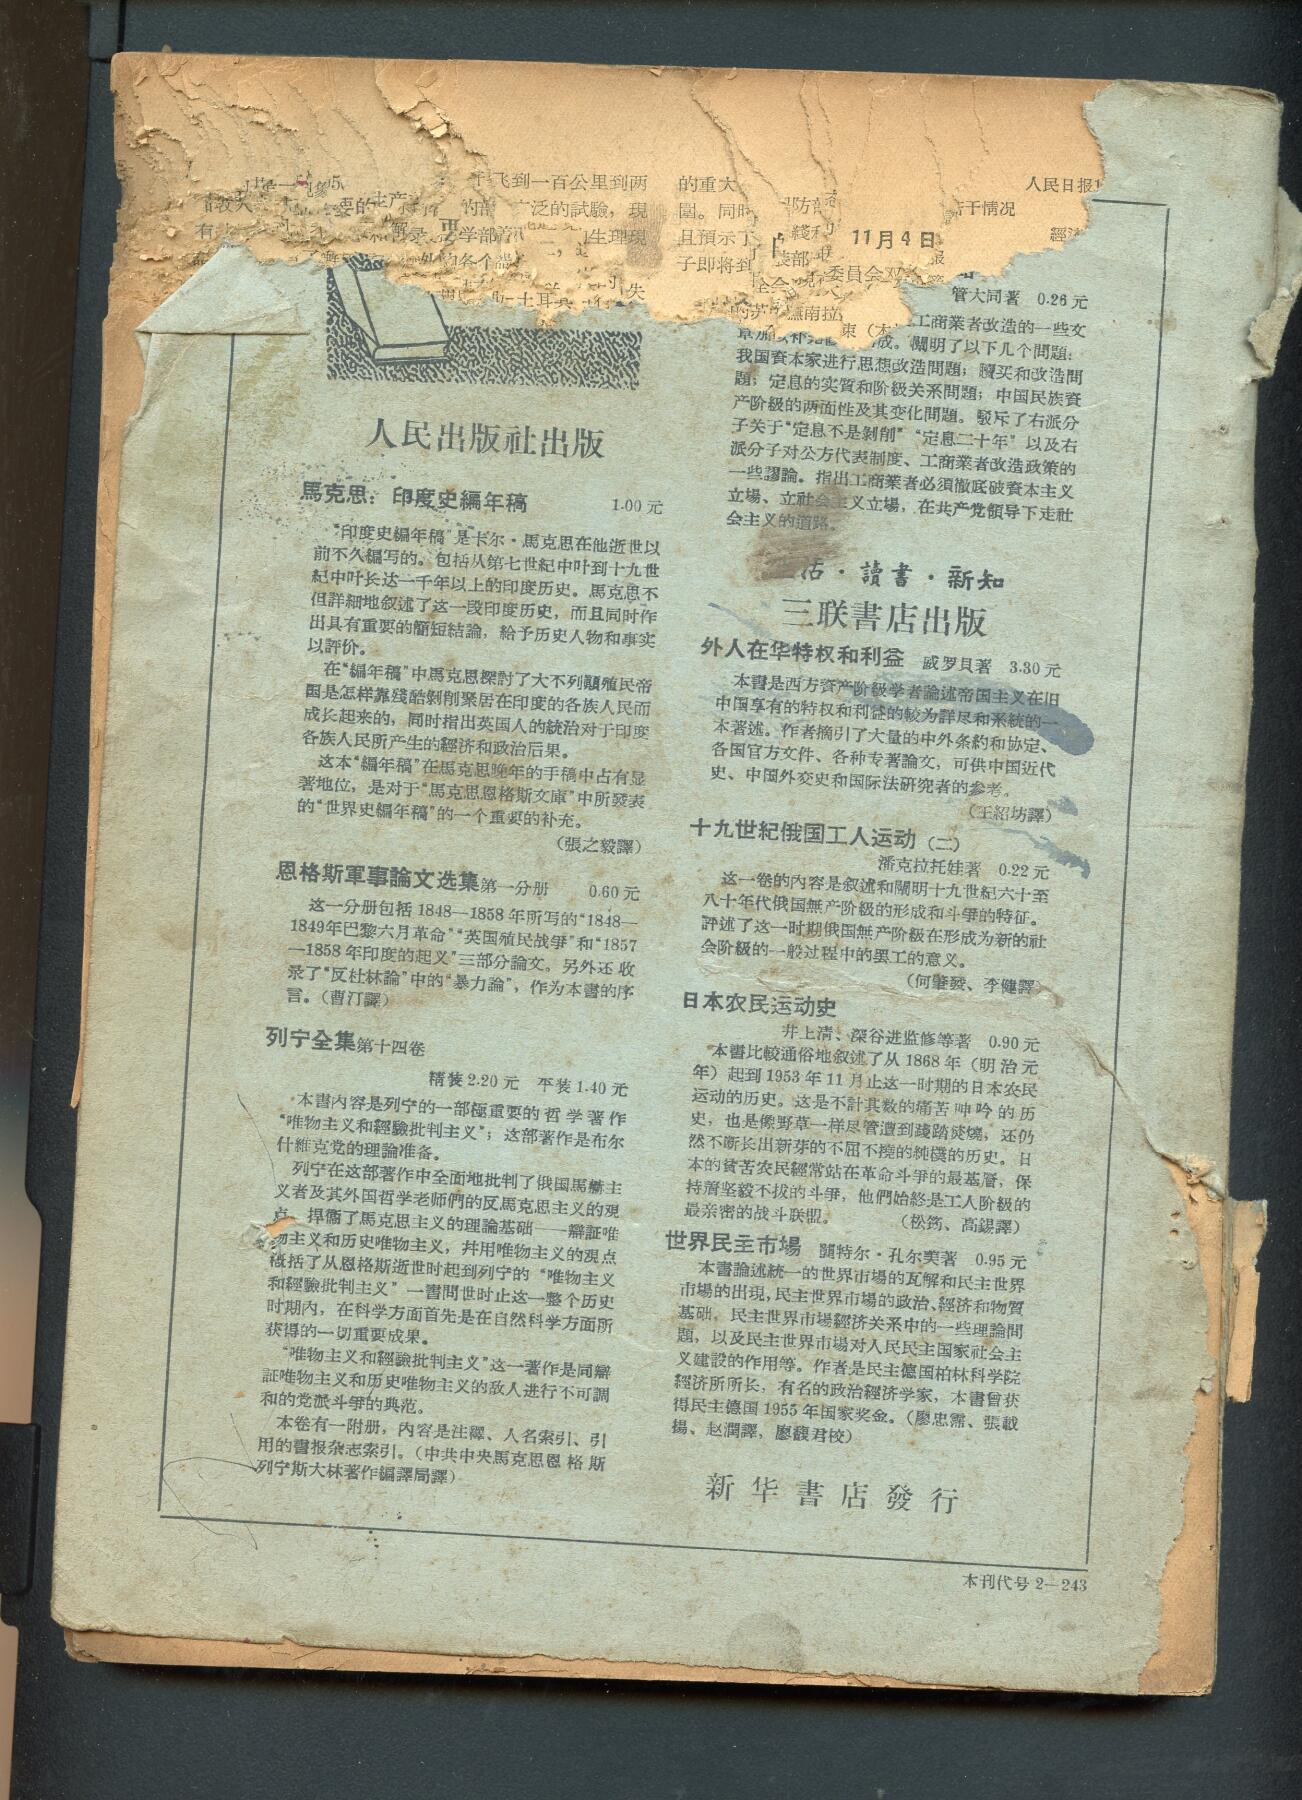 飞到一百公里到两
泛的試驗，現
的重大
圍。同时
且預示了
子即将到
人民日报
若干情况
11月4日
委員会双
人民出版社出版
馬克思：印度史編年稿 1.00元
“印度史編年稿”是卡尔·馬克思在他逝世以
前不久編写的。包括从第七世紀中叶到十九世
紀中叶长达一千年以上的印度历史。馬克思不
但詳細地叙述了这一段印度历史，而且同时作
出具有重要的簡短結論，給予历史人物和事实
以評价。
在“編年稿”中馬克思探討了大不列顛殖民帝
国是怎样靠残酷剝削聚居在印度的各族人民而
成长起来的，同时指出英国人的統治对于印度
各族人民所产生的經济和政治后果。
这本“編年稿”在馬克思晚年的手稿中占有显
著地位，是对于“馬克思恩格斯文庫”中所發表
的“世界史編年稿”的一个重要的补充。
（張之毅譯）
恩格斯軍事論文选集第一分册 0.60元
这一分册包括1848—1858年所写的“1848—
1849年巴黎六月革命”“英国殖民战爭”和“1857
—1858年印度的起义”三部分論文。另外还收
录了“反杜林論”中的“暴力論”，作为本書的序
言。（曹汀譯）
列宁全集第十四卷
精装2.20元 平装1.40元
本書內容是列宁的一部極重要的哲学著作
“唯物主义和經驗批判主义”；这部著作是布尔
什維克党的理論准备。
列宁在这部著作中全面地批判了俄国馬赫主
义者及其外国哲学老师們的反馬克思主义的观
点，捍衞了馬克思主义的理論基础——辯証唯
物主义和历史唯物主义，幷用唯物主义的观点
概括了从恩格斯逝世时起到列宁的“唯物主义
和經驗批判主义”一書問世时止这一整个历史
时期內，在科学方面首先是在自然科学方面所
获得的一切重要成果。
“唯物主义和經驗批判主义”这一著作是同辯
証唯物主义和历史唯物主义的敌人进行不可調
和的党派斗爭的典范。
本卷有一附册，内容是注釋、人名索引、引
用的書报杂志索引。（中共中央馬克思恩格斯
列宁斯大林著作編譯局譯）
管大同著 0.26元
工商業者改造的一些文
成。闡明了以下几个問題：
我国資本家进行思想改造問題；贖买和改造問
題；定息的实質和阶級关系問題；中国民族資
产阶級的两面性及其变化問題。駁斥了右派分
子关于“定息不是剝削”“定息二十年”以及右
派分子对公方代表制度、工商業者改造政策的
一些謬論。指出工商業者必須徹底破資本主义
立場、立社会主义立場，在共产党領导下走社
会主义的道路。
活·讀書·新知
三联書店出版
外人在华特权和利益 威罗貝著 3.30元
本書是西方資产阶級学者論述帝国主义在旧
中国享有的特权和利益的較为詳尽和系統的一
本著述。作者摘引了大量的中外条約和协定、
各国官方文件、各种专著論文，可供中国近代
史、中国外交史和国际法研究者的参考。
（王紹坊譯）
十九世紀俄国工人运动（二）
潘克拉托娃著 0.22元
这一卷的内容是叙述和闡明十九世紀六十至
八十年代俄国無产阶級的形成和斗爭的特征。
評述了这一时期俄国無产阶級在形成为新的社
会阶級的一般过程中的罢工的意义。
（何肇發、李健譯）
日本农民运动史
井上清、深谷进监修等著 0.90元
本書比較通俗地叙述了从1868年（明治元
年）起到1953年11月止这一时期的日本农民
运动的历史。这是不計其数的痛苦呻吟的历
史，也是像野草一样尽管遭到踐踏焚燒，还仍
然不断长出新芽的不屈不撓的純樸的历史。日
本的貧苦农民經常站在革命斗爭的最基層，保
持着坚毅不拔的斗爭，他們始終是工人阶級的
最亲密的战斗联盟。 （松筠、高錫譯）
世界民主市場 贡特尔·孔尔美著 0.95元
本書論述統一的世界市場的瓦解和民主世界
市場的出現，民主世界市場的政治、經济和物質
基础，民主世界市場經济关系中的一些理論問
題，以及民主世界市場对人民民主国家社会主
义建設的作用等。作者是民主德国柏林科学院
經济所所长，有名的政治經济学家，本書曾获
得民主德国1955年国家奖金。（廖忠霈、張載
揚、赵潤譯，廖馥君校）
新华書店發行
本刊代号2—243